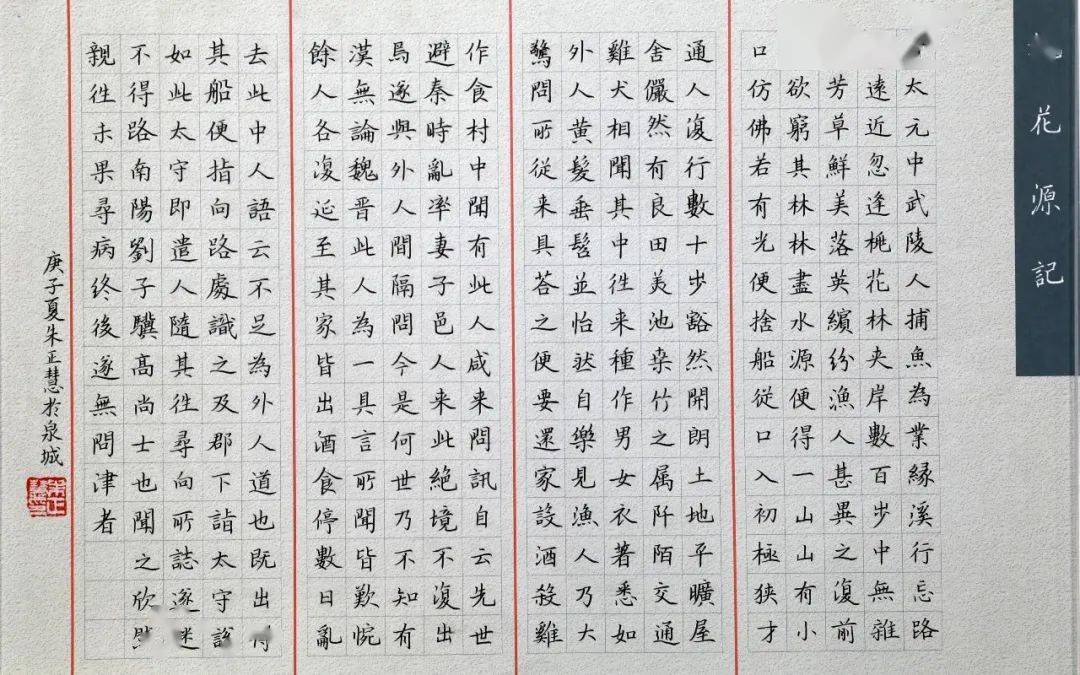 花源記
太元中武陵人捕魚為業縁溪行忘路
遠近忽逢桃花林夾岸數百步中無雜
芳草鮮美落英繽紛漁人甚異之復前
欲窮其林林盡水源便得一山山有小
口仿佛若有光便捨船從口入初極狹才
通人復行數十步豁然開朗土地平曠屋
舍儼然有良田美池桒竹之属阡陌交通
雞犬相聞其中往来種作男女衣著悉如
外人黄髮垂髫並怡然自樂見漁人乃大
驚問所從来具荅之便要還家設酒殺雞
作食村中聞有此人咸来問訊自云先世
避秦時亂率妻子邑人来此絕境不復出
焉遂與外人間隔問今是何世乃不知有
漢無論魏晋此人為一具言所聞皆歎惋
餘人各復延至其家皆出酒食停數日亂
去此中人語云不足為外人道也既出
其船便指向路處識之及郡下詣太守說
如此太守即遣人隨其往尋向所誌遂迷
不得路南陽劉子驥高尚士也聞之欣
親往未果尋病終後遂無問津者
庚子夏朱正慧於泉城